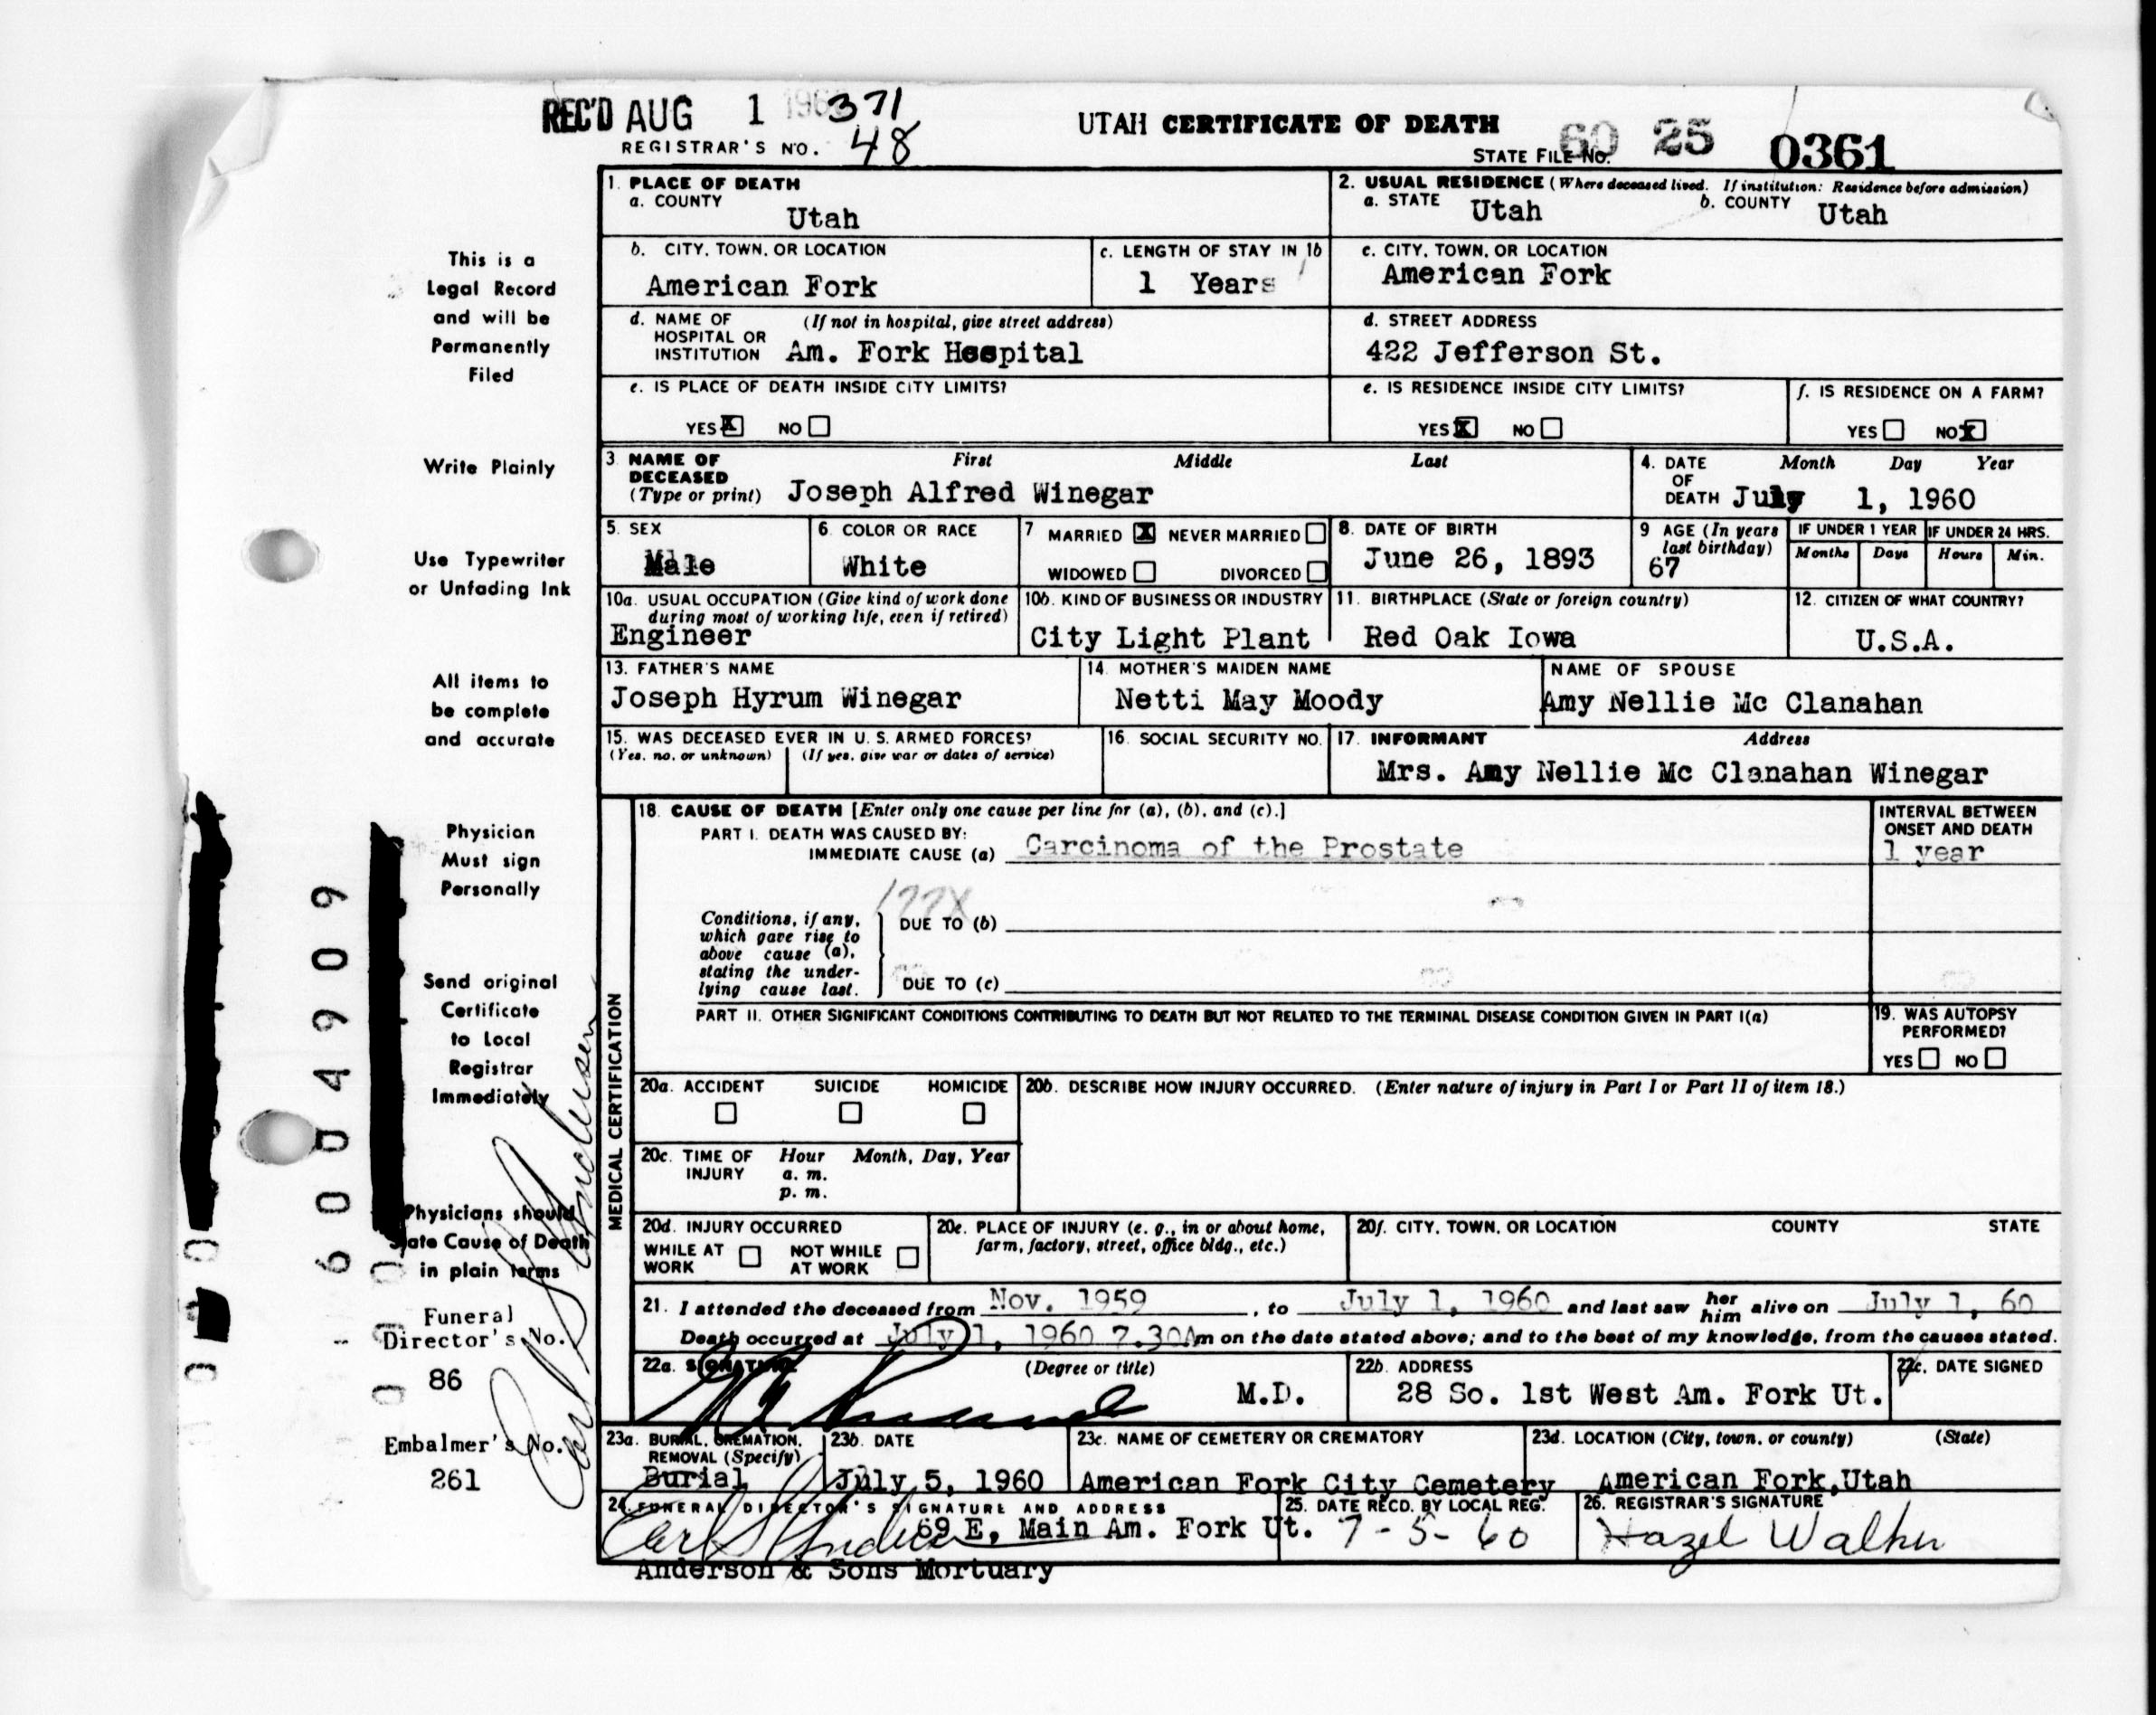 REC'D AUG 1 196 371
REGISTRAR'S NO. 48
UTAH CERTIFICATE OF DEATH
STATE FILE NO. 60 25 0361
This is a
Legal Record
and will be
Permanently
Filed
Write Plainly
Use Typewriter
or Unfading Ink
All items to
be complete
and accurate
Physician
Must sign
Personally
Send original
Certificate
to Local
Registrar
Immediately
Physicians should
State Cause of Death
in plain terms
Funeral
Director's No.
86
Embalmer's No.
261
6004909
1. PLACE OF DEATH
a. COUNTY
Utah
2. USUAL RESIDENCE (Where deceased lived. If institution: Residence before admission)
a. STATE Utah b. COUNTY Utah
b. CITY, TOWN, OR LOCATION
American Fork
c. LENGTH OF STAY IN 1b
1 Years
c. CITY, TOWN, OR LOCATION
American Fork
d. NAME OF (If not in hospital, give street address)
HOSPITAL OR
INSTITUTION Am. Fork Hospital
d. STREET ADDRESS
422 Jefferson St.
e. IS PLACE OF DEATH INSIDE CITY LIMITS?
YES X NO
e. IS RESIDENCE INSIDE CITY LIMITS?
YES X NO
f. IS RESIDENCE ON A FARM?
YES NO X
3. NAME OF First Middle Last
DECEASED
(Type or print) Joseph Alfred Winegar
4. DATE Month Day Year
OF
DEATH July 1, 1960
5. SEX
Male
6. COLOR OR RACE
White
7 MARRIED X NEVER MARRIED
WIDOWED DIVORCED
8. DATE OF BIRTH
June 26, 1893
9 AGE (In years
last birthday)
67
IF UNDER 1 YEAR IF UNDER 24 HRS.
Months Days Hours Min.
10a. USUAL OCCUPATION (Give kind of work done
during most of working life, even if retired)
Engineer
10b. KIND OF BUSINESS OR INDUSTRY
City Light Plant
11. BIRTHPLACE (State or foreign country)
Red Oak Iowa
12. CITIZEN OF WHAT COUNTRY?
U.S.A.
13. FATHER'S NAME
Joseph Hyrum Winegar
14. MOTHER'S MAIDEN NAME
Netti May Moody
NAME OF SPOUSE
Amy Nellie Mc Clanahan
15. WAS DECEASED EVER IN U. S. ARMED FORCES?
(Yes, no, or unknown) (If yes, give war or dates of service)
16. SOCIAL SECURITY NO.
17. INFORMANT Address
Mrs. Amy Nellie Mc Clanahan Winegar
MEDICAL CERTIFICATION
18. CAUSE OF DEATH [Enter only one cause per line for (a), (b), and (c).]
PART I. DEATH WAS CAUSED BY:
IMMEDIATE CAUSE (a) Carcinoma of the Prostate
INTERVAL BETWEEN
ONSET AND DEATH
1 year
177X
Conditions, if any,
which gave rise to
above cause (a),
stating the under-
lying cause last.
DUE TO (b)
DUE TO (c)
PART II. OTHER SIGNIFICANT CONDITIONS CONTRIBUTING TO DEATH BUT NOT RELATED TO THE TERMINAL DISEASE CONDITION GIVEN IN PART I(a)
19. WAS AUTOPSY
PERFORMED?
YES NO
20a. ACCIDENT SUICIDE HOMICIDE
20b. DESCRIBE HOW INJURY OCCURRED. (Enter nature of injury in Part I or Part II of item 18.)
20c. TIME OF Hour Month, Day, Year
INJURY a. m.
p. m.
20d. INJURY OCCURRED
WHILE AT NOT WHILE
WORK AT WORK
20e. PLACE OF INJURY (e. g., in or about home,
farm, factory, street, office bldg., etc.)
20f. CITY, TOWN, OR LOCATION COUNTY STATE
21. I attended the deceased from Nov. 1959, to July 1, 1960 and last saw her him alive on July 1, 60
Death occurred at July 1, 1960 7.30Am on the date stated above; and to the best of my knowledge, from the causes stated.
22a. SIGNATURE (Degree or title)
M.D.
22b. ADDRESS
28 So. 1st West Am. Fork Ut.
22c. DATE SIGNED
23a. BURIAL, CREMATION,
REMOVAL (Specify)
Burial
23b. DATE
July 5, 1960
23c. NAME OF CEMETERY OR CREMATORY
American Fork City Cemetery
23d. LOCATION (City, town, or county) (State)
American Fork, Utah
24. FUNERAL DIRECTOR'S SIGNATURE AND ADDRESS
Carl S Anderson 69 E, Main Am. Fork Ut.
Anderson & Sons Mortuary
25. DATE RECD. BY LOCAL REG.
7-5-60
26. REGISTRAR'S SIGNATURE
Hazel Walker
Carl S Anderson